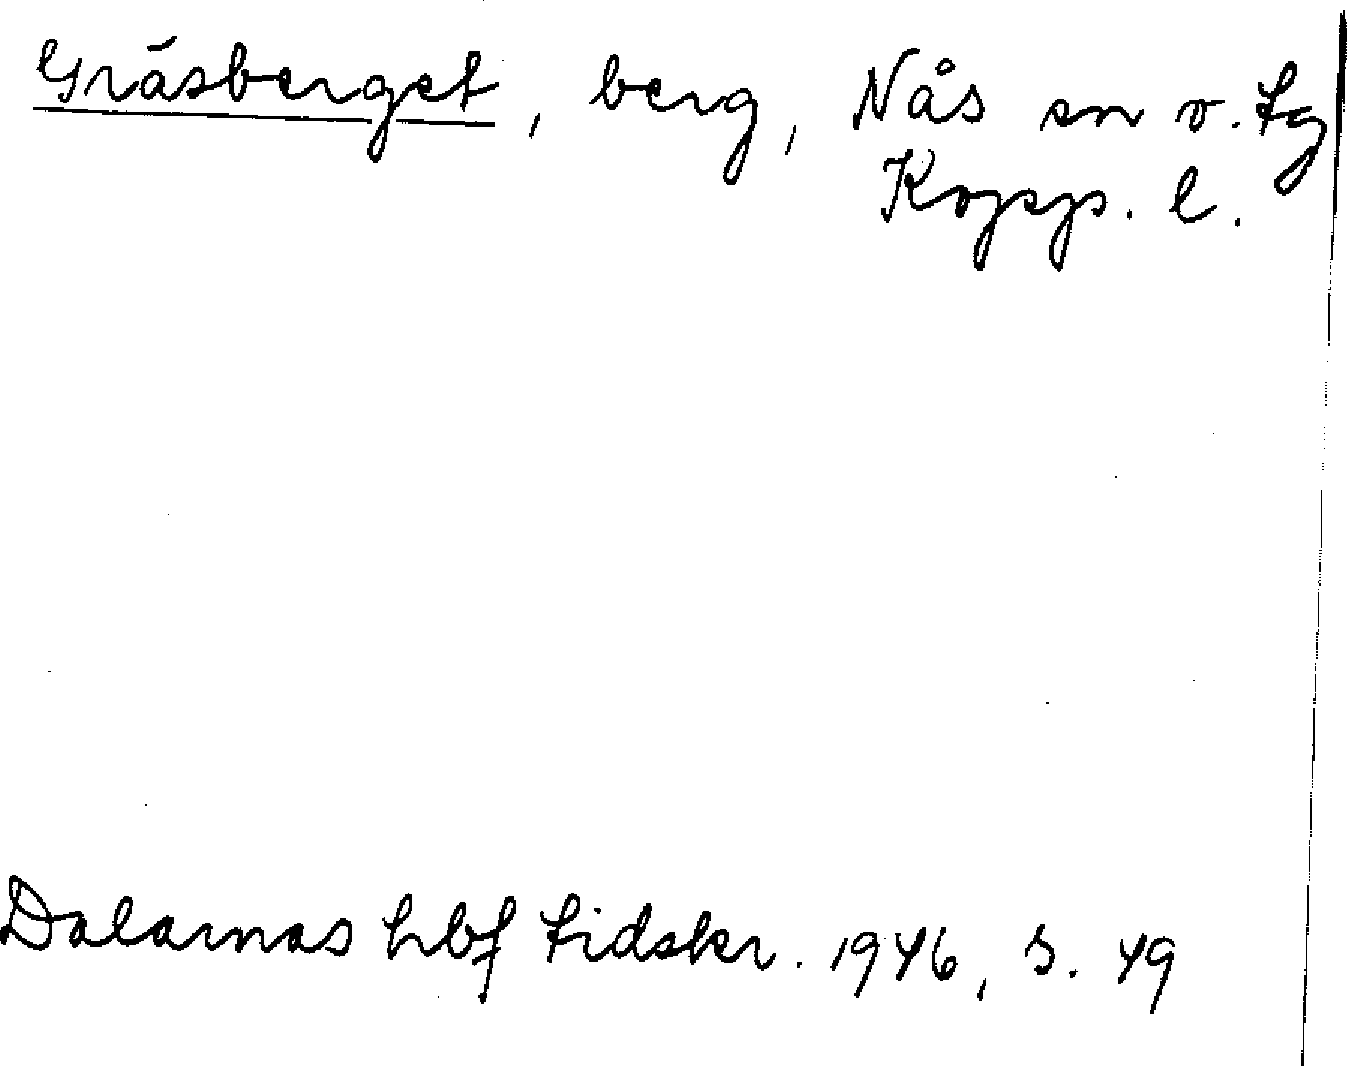 Gräsberget, berg, Nås sn v. tg
Kopp. l.
Dalarnas hbf tidskr. 1946, s. 49